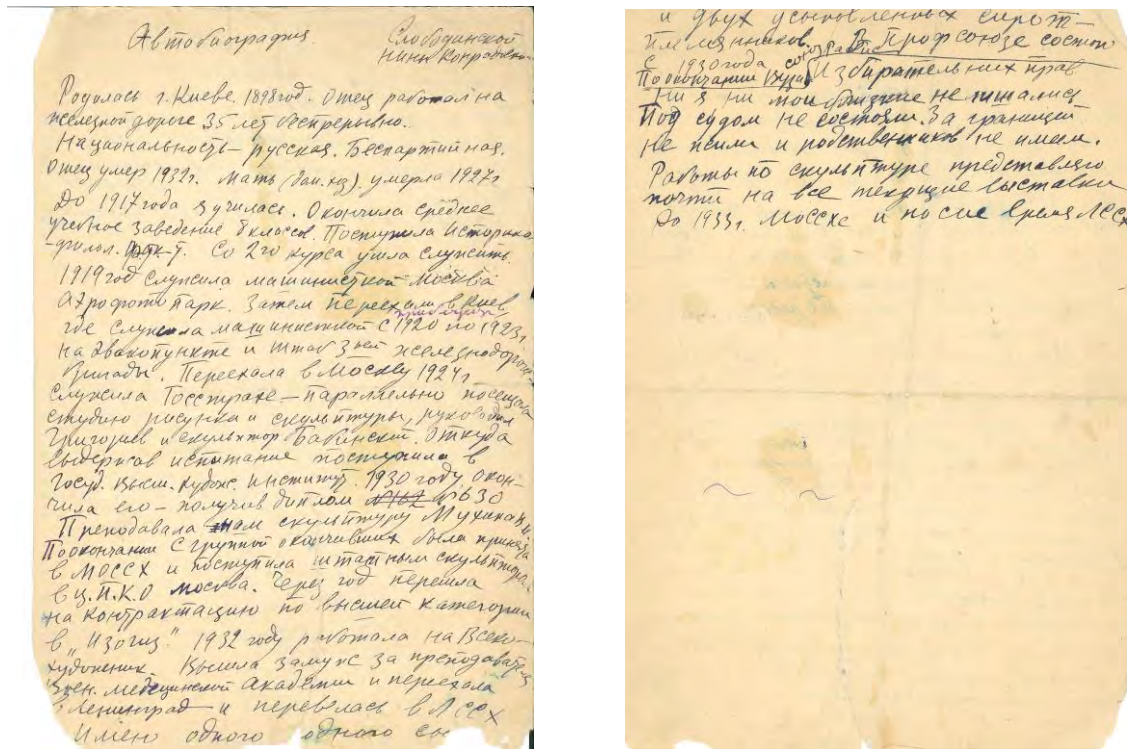 Автобиография.
Слободинской
Нины Конрадовны
Родилась г. Киеве. 1898 год. Отец работал на
железной дороге 35 лет беспрерывно.
Национальность – русская. Беспартийная.
Отец умер 1932 г. Мать (дом. хоз.) умерла 1927 г
До 1917 года я училась. Окончила среднее
учебное заведение 8 классов. Поступила Историко-
филол. фак-т. Со 2го курса ушла служить.
1919 год служила машинисткой Москва
Аэрофото парк. Затем переехали в Киев,
где служила машинисткой с 1920 по 1923 г
на эвакопункте и штаб 3ей железнодорожн-
бригады. Переехала в Москву 1924 г
служила Госстрахе – параллельно посещала
студию рисунка и скульптуры, руководил
Григорьев и скульптор Бабинский. Откуда
выдержав испытание поступила в
Госуд. высш. художс. институт. 1930 году окон-
чила его – получив диплом №162 №630
Преподавала нам скульптуру Мухина В.И.
По окончании с группой окончивших была принята
в МОССХ и поступила штатным скульптором
в Ц.П.К.О Москва. Через год перешла
на контрактацию по высшей категории
в „Изогиз" 1932 году работала на Всеко-
художник. Вышла замуж за преподавателя
Воен. медицинской Академии и переехала
в Ленинград – и перевелась в ЛССХ
Имею одного родного сы
и двух усыновленных сирот –
племянников. В Профсоюзе состою
с 1930 года
По окончании Вуза Избирательных прав
ни я ни мои близкие не лишались
Под судом не состояли. За границей
не жили и родственников не имеем.
Работы по скульптуре представляю
почти на все текущие выставки
До 1933 г. МОССХе и после время ЛССХ